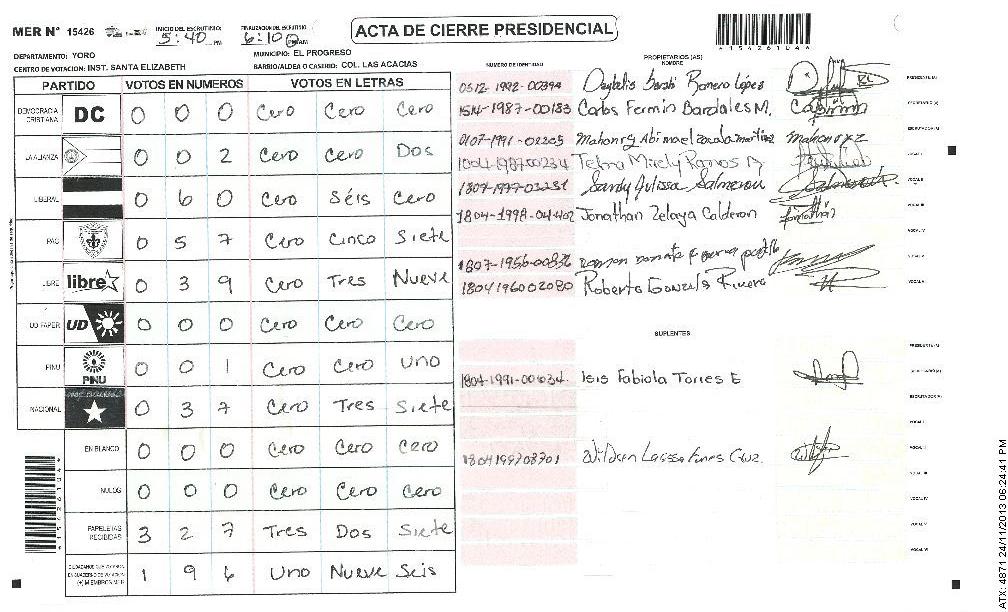 MER Nº 15426
INICIO DEL ESCRUTINIO: 5:40 PM
FINALIZACION DEL ESCRUTINIO: 6:10 PM
ACTA DE CIERRE PRESIDENCIAL
*15426104*
DEPARTAMENTO: YORO MUNICIPIO: EL PROGRESO
CENTRO DE VOTACION: INST. SANTA ELIZABETH BARRIO/ALDEA O CASERIO: COL. LAS ACACIAS
PARTIDO VOTOS EN NUMEROS VOTOS EN LETRAS
DEMOCRACIA CRISTIANA DC 0 0 0 Cero Cero Cero
LA ALIANZA 0 0 2 Cero Cero Dos
LIBERAL 0 6 0 Cero Séis Cero
PAC 0 5 7 Cero Cinco Siete
LIBRE libre 0 3 9 Cero Tres Nueve
UD FAPER UD 0 0 0 Cero Cero Cero
PINU PINU 0 0 1 Cero Cero Uno
NACIONAL 0 3 7 Cero Tres Siete
EN BLANCO 0 0 0 Cero Cero Cero
NULOS 0 0 0 Cero Cero Cero
PAPELETAS RECIBIDAS 3 2 7 Tres Dos Siete
CIUDADANOS QUE VOTARON EN CUADERNO DE VOTACION (+) MIEMBROS MER 1 9 6 Uno Nueve Seis
NUMERO DE IDENTIDAD PROPIETARIOS (AS)
NOMBRE
0512-1992-00394 Romero López PRESIDENTE (A)
1514-1987-00183 Carlos Fermin Bardales M. SECRETARIO (A)
0107-1991-02205 ESCRUTADOR (A)
1004-1987-00234 Telma Mirely Ramos VOCAL I
1807-1997-03231 Sandy Julissa Salmeron VOCAL II
1804-1998-04402 Jonathan Zelaya Calderon Jonathan VOCAL III
VOCAL IV
1807-1956-00836 VOCAL V
1804196002080 Roberto Gonzales Rivera VOCAL VI
SUPLENTES
PRESIDENTE (A)
1804-1991-001034 Isis Fabiola Torres E SECRETARIO (A)
ESCRUTADOR (A)
VOCAL I
1804199703701 VOCAL II
VOCAL III
VOCAL IV
VOCAL V
VOCAL VI
*15426104*
ATX: 4871 24/11/2013 06:24:41 PM